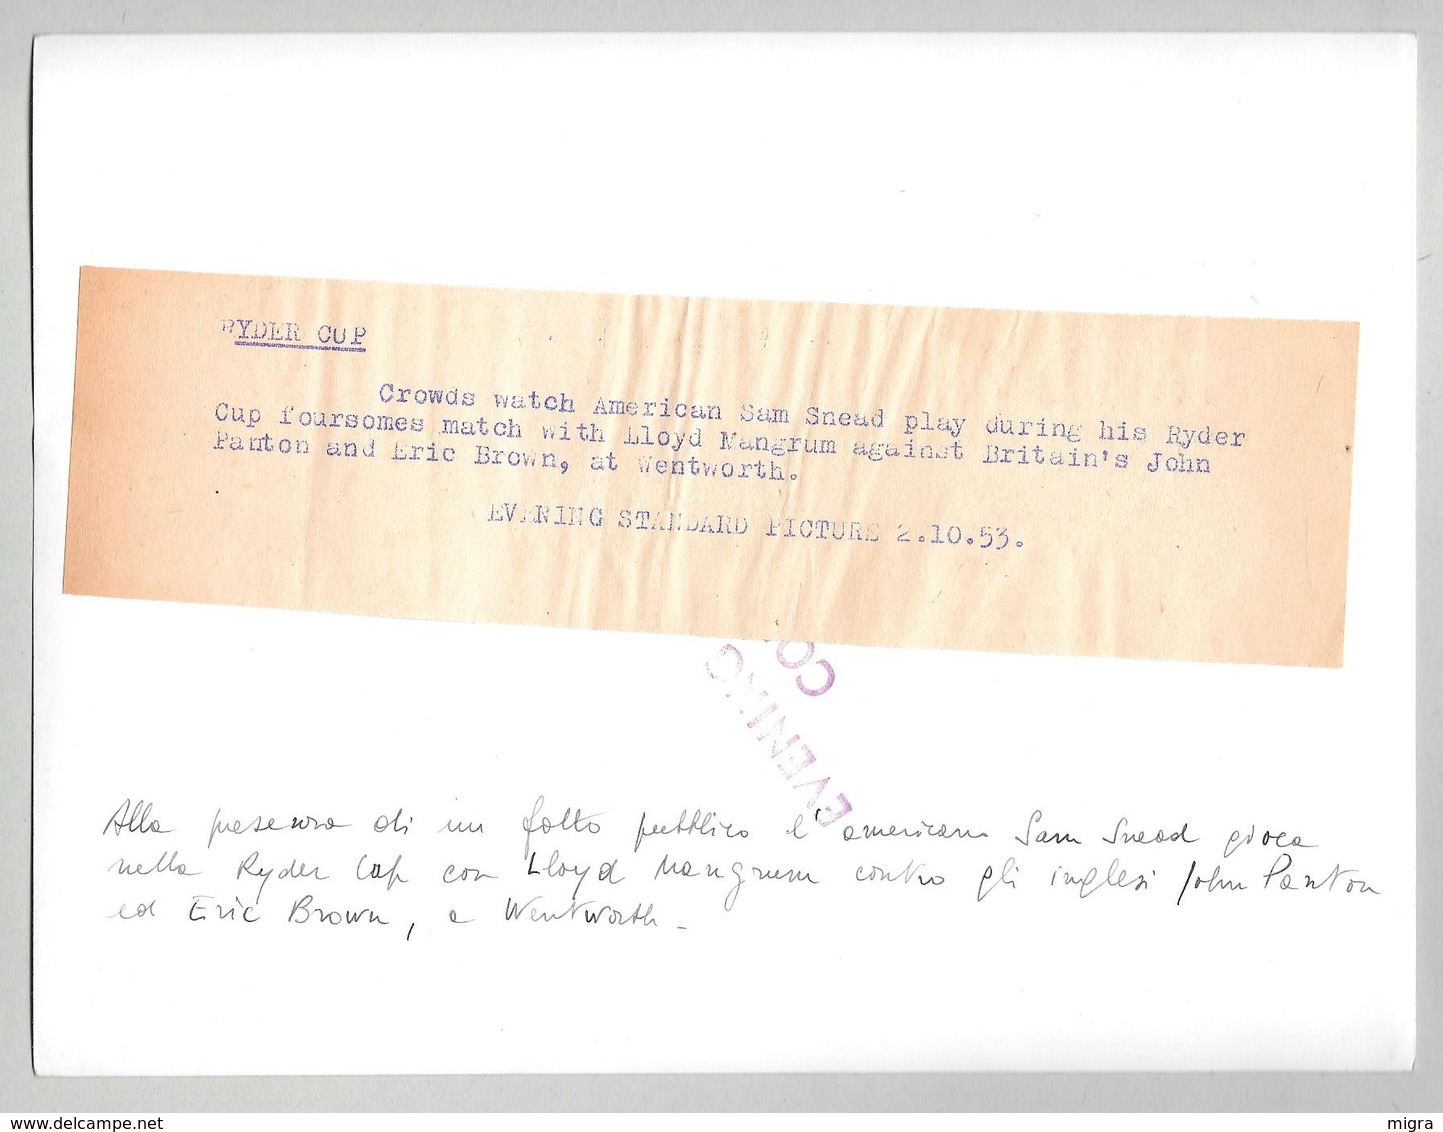 RYDER CUP
Crowds watch American Sam Snead play during his Ryder
Cup foursomes match with Lloyd Mangrum against Britain's John
Panton and Eric Brown, at Wentworth.
EVENING STANDARD PICTURE 2.10.53.
CO
EVENING
Alla presenza di un folto pubblico l'americano Sam Snead gioca
nella Ryder Cup con Lloyd Mangrum contro gli inglesi John Panton
ed Eric Brown, a Wentworth.
www.delcampe.net
migra